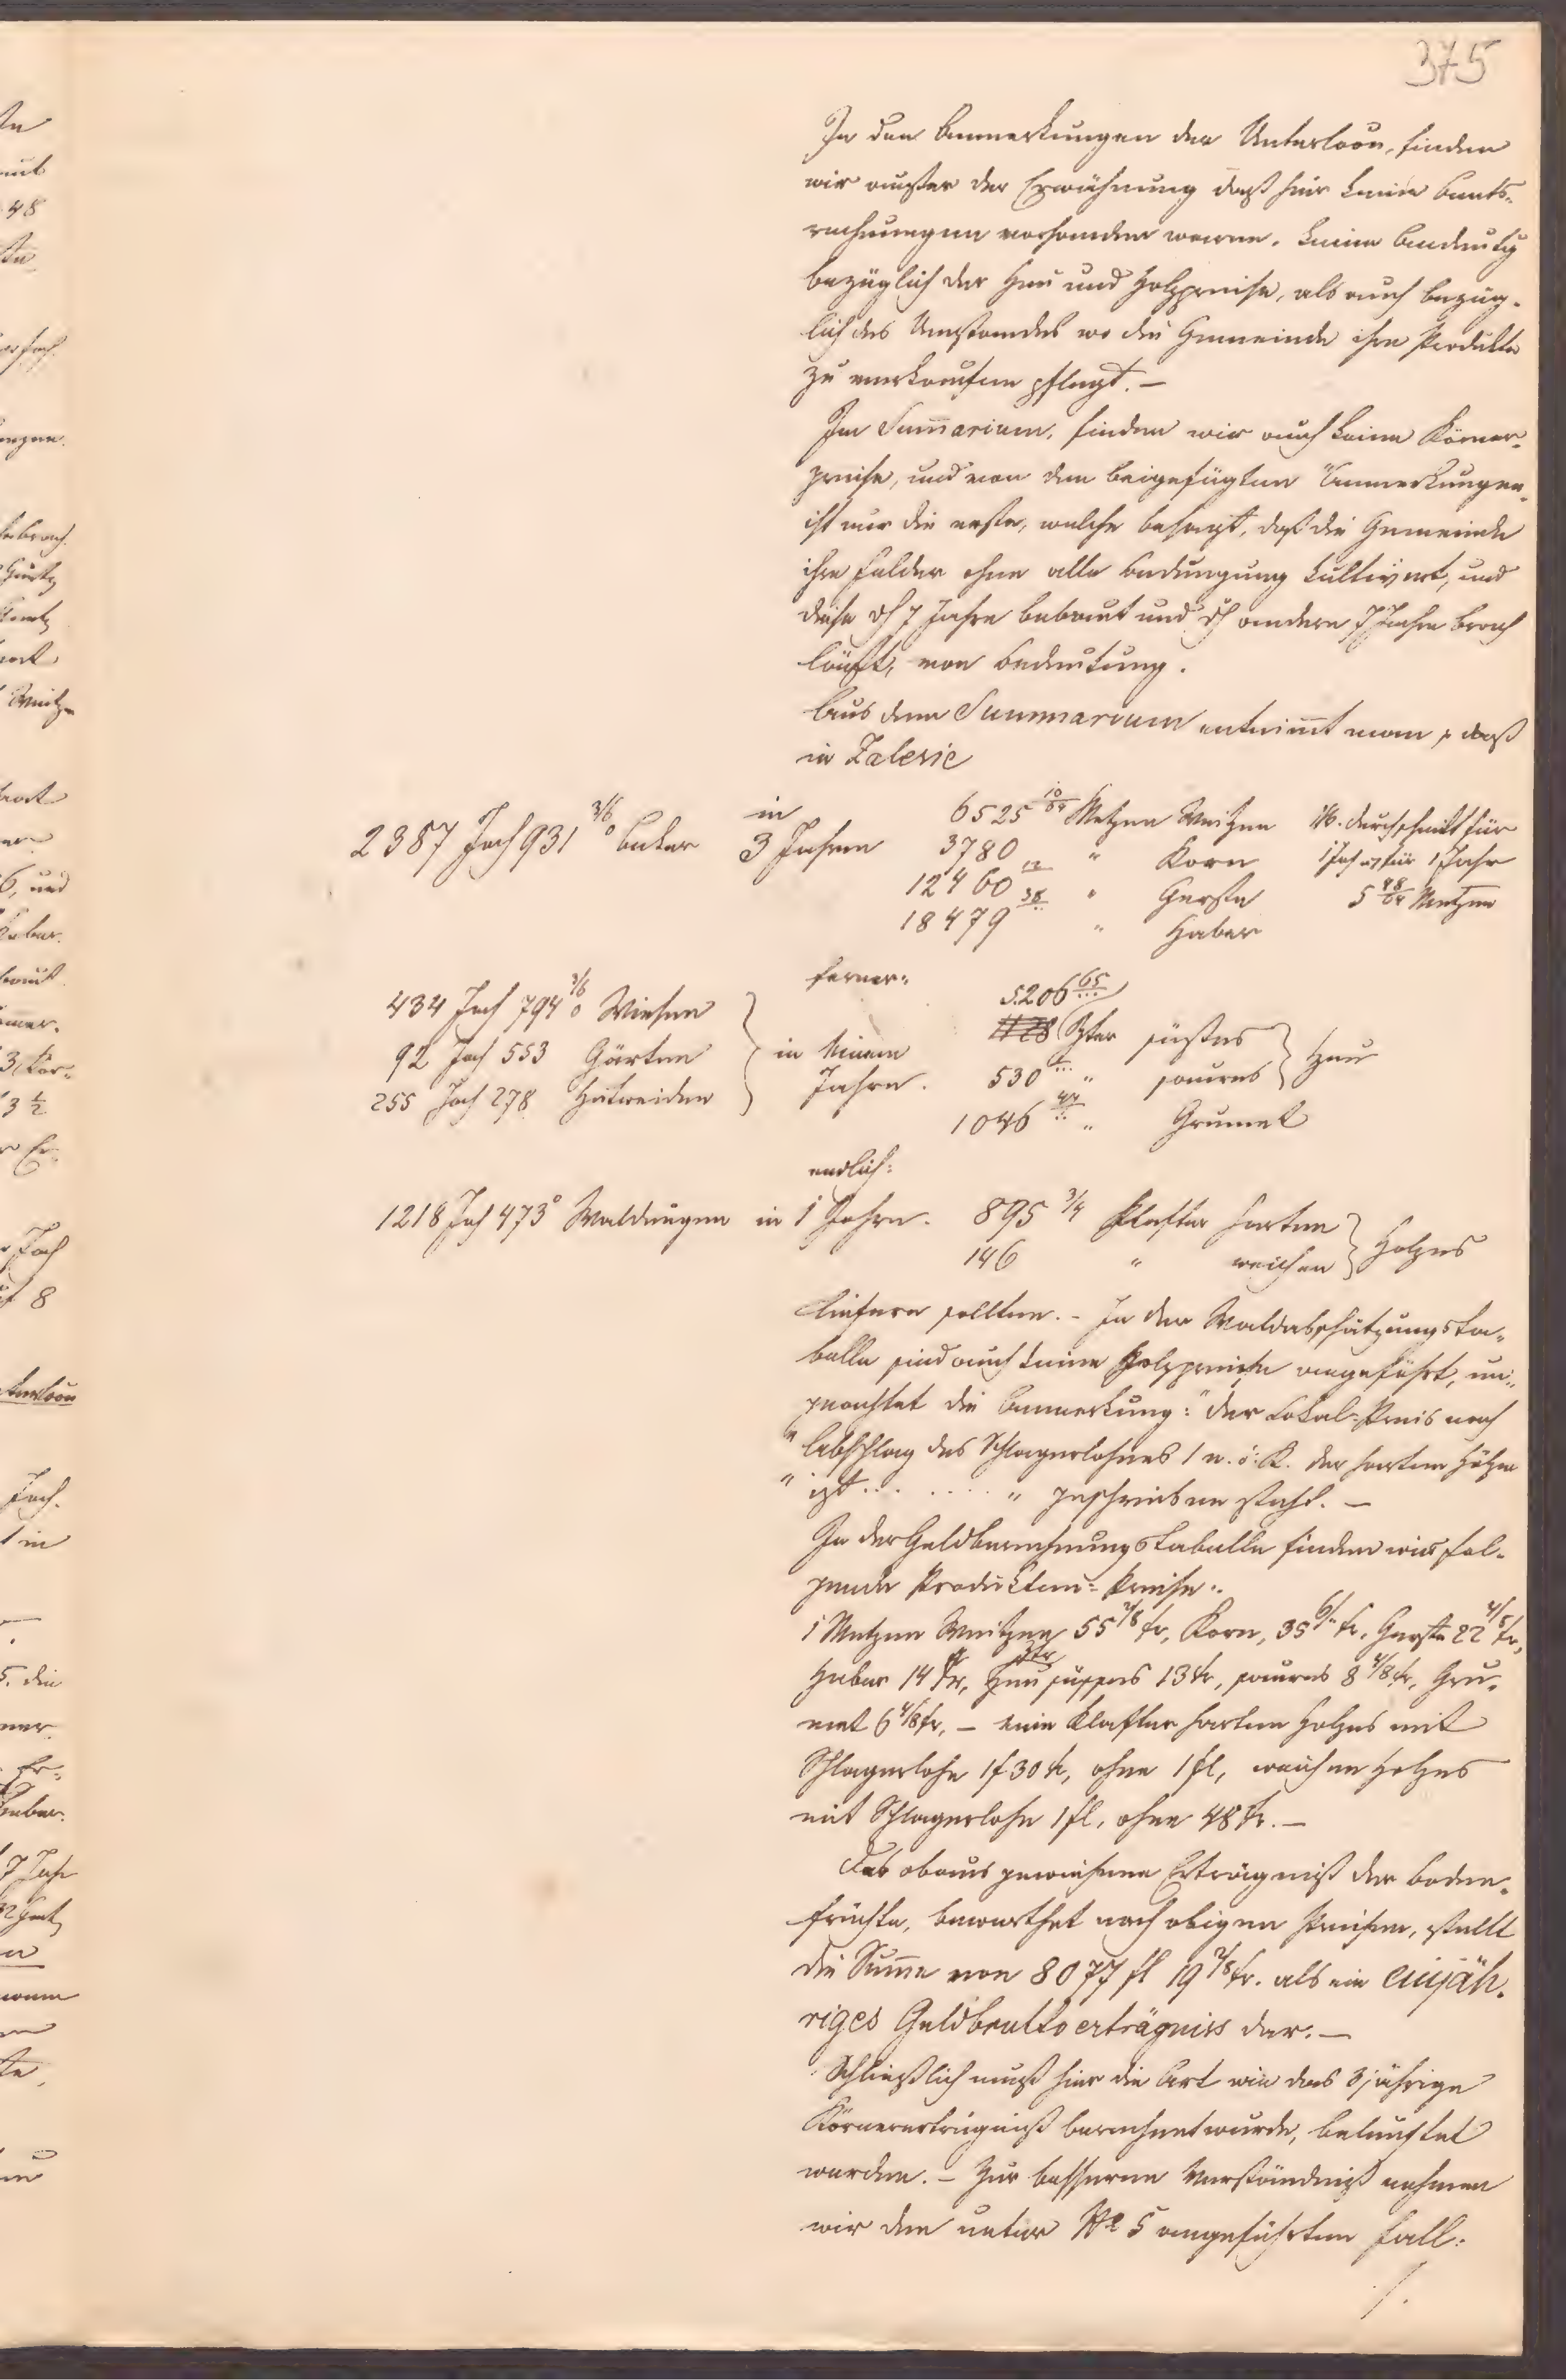 375
In den Anmerkungen der Unterloov, finden
wir außer der Erwähnung daß hier keine Amts-
rechnungen vorhanden waren, keine Andeutg
bezüglich der Heu und Holzpreise, als auch bezüg-
lich des Umstandes wo die Gemeinde ihre Produkte
zu verkaufen pflegt. –
Im Sum̅arium, finden wir auch keine Körner-
preise, und von den beigefügten Anmerkungen,
ist nur die erste, welche besagt, daß die Gemeinde
ihre Felder ohne alle Bedüngung kultivirt, und
diese dh 7 Jahre bebaut und dh andere 7 Jahre brach
läußt, von Bedeutung.
Aus dem Summarium entnim̅t man, daß
in Zalesie
2387 Joch 931 3/6 ° Acker in 3 Jahren 6525 10/64 Metzen Weitzen
3780 " Korn
12460 12/.. " Gerste
18479 38/.. " Haber
durchschnitt für
1 Joch für 1 Jahr
5 48/64 Metzen
ferner:
434 Joch 794 3/6 ° Wiesen
92 Joch 553 Gärten
255 Joch 278 Hutweiden
in einem
Jahre.
5206 65/...
1128 Zter süßes
530 " saures
Heu
1046 44/.. " Grumet
endlich:
1218 Joch 473° Waldungen in 1 Jahre. 895 3/4 Klafter harten
146 " weichen
Holzes
liefern sollten. – In der Waldabschätzungsta-
belle sind auch keine Holzpreise angeführt, un-
geachtet die Anmerkung: "der Lokal-Preis nach
"Abschlag des Schlagerlohnes 1 n. ö. K. der harten Hölzer
" ist ... ...." geschrieben steht. –
In der Geldberechnungstabelle finden wir fol-
gende Produkten-Preise:
1 Metzen Weitzen 55 2/8 kr, Korn, 35 6/.. kr. Gerste 22 4/8 kr,
Haber 14 kr, Ztr Heu süsses 13 kr, saures 8 4/8 kr, Gru-
met 6 4/8 kr, – eine Klafter harten Holzes mit
Schlagerlohn 1 f 30 kr, ohne 1 fl, weichen Holzes
mit Schlagerlohn 1 fl, ohne 48 kr. –
Das obausgewiesene Erträgniß der Boden-
früchte, bewerthet nach obigen Preisen, stellt
die Sum̅e von 8077 fl 19 2/8 kr. als ein einjäh-
riges Geldbruttoerträgniss dar. –
Schließlich muß hier die Art wie das 3 jährige
Körnererträgniß berechnet wurde, beleuchtet
werden. – Zur besseren Verständniß nehmen
wir den unter No 5 angeführten Fall:
/.